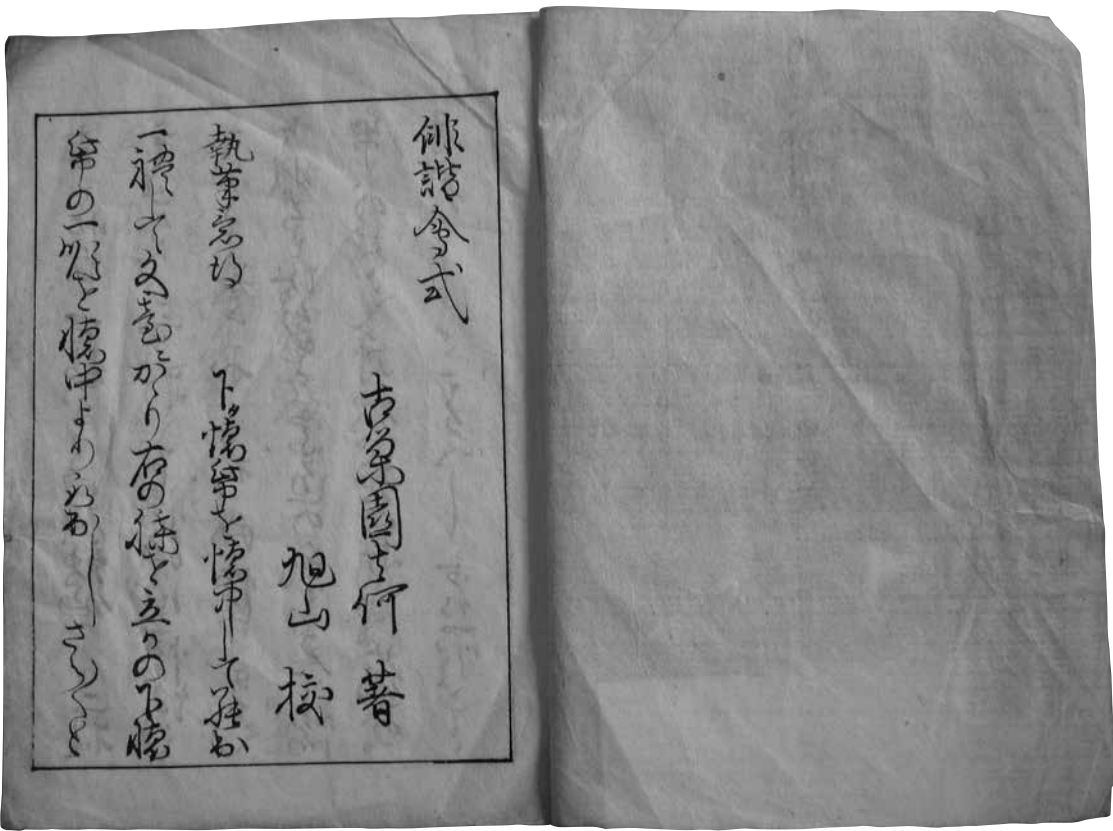 俳諧會式
古菜園去何 著
旭山 校
執筆意得 下懐帋を懐中して罷出
一禮して文臺にかゝり右の膝を立かの下懐
帋の一順を懐中より取出しさら〳〵と